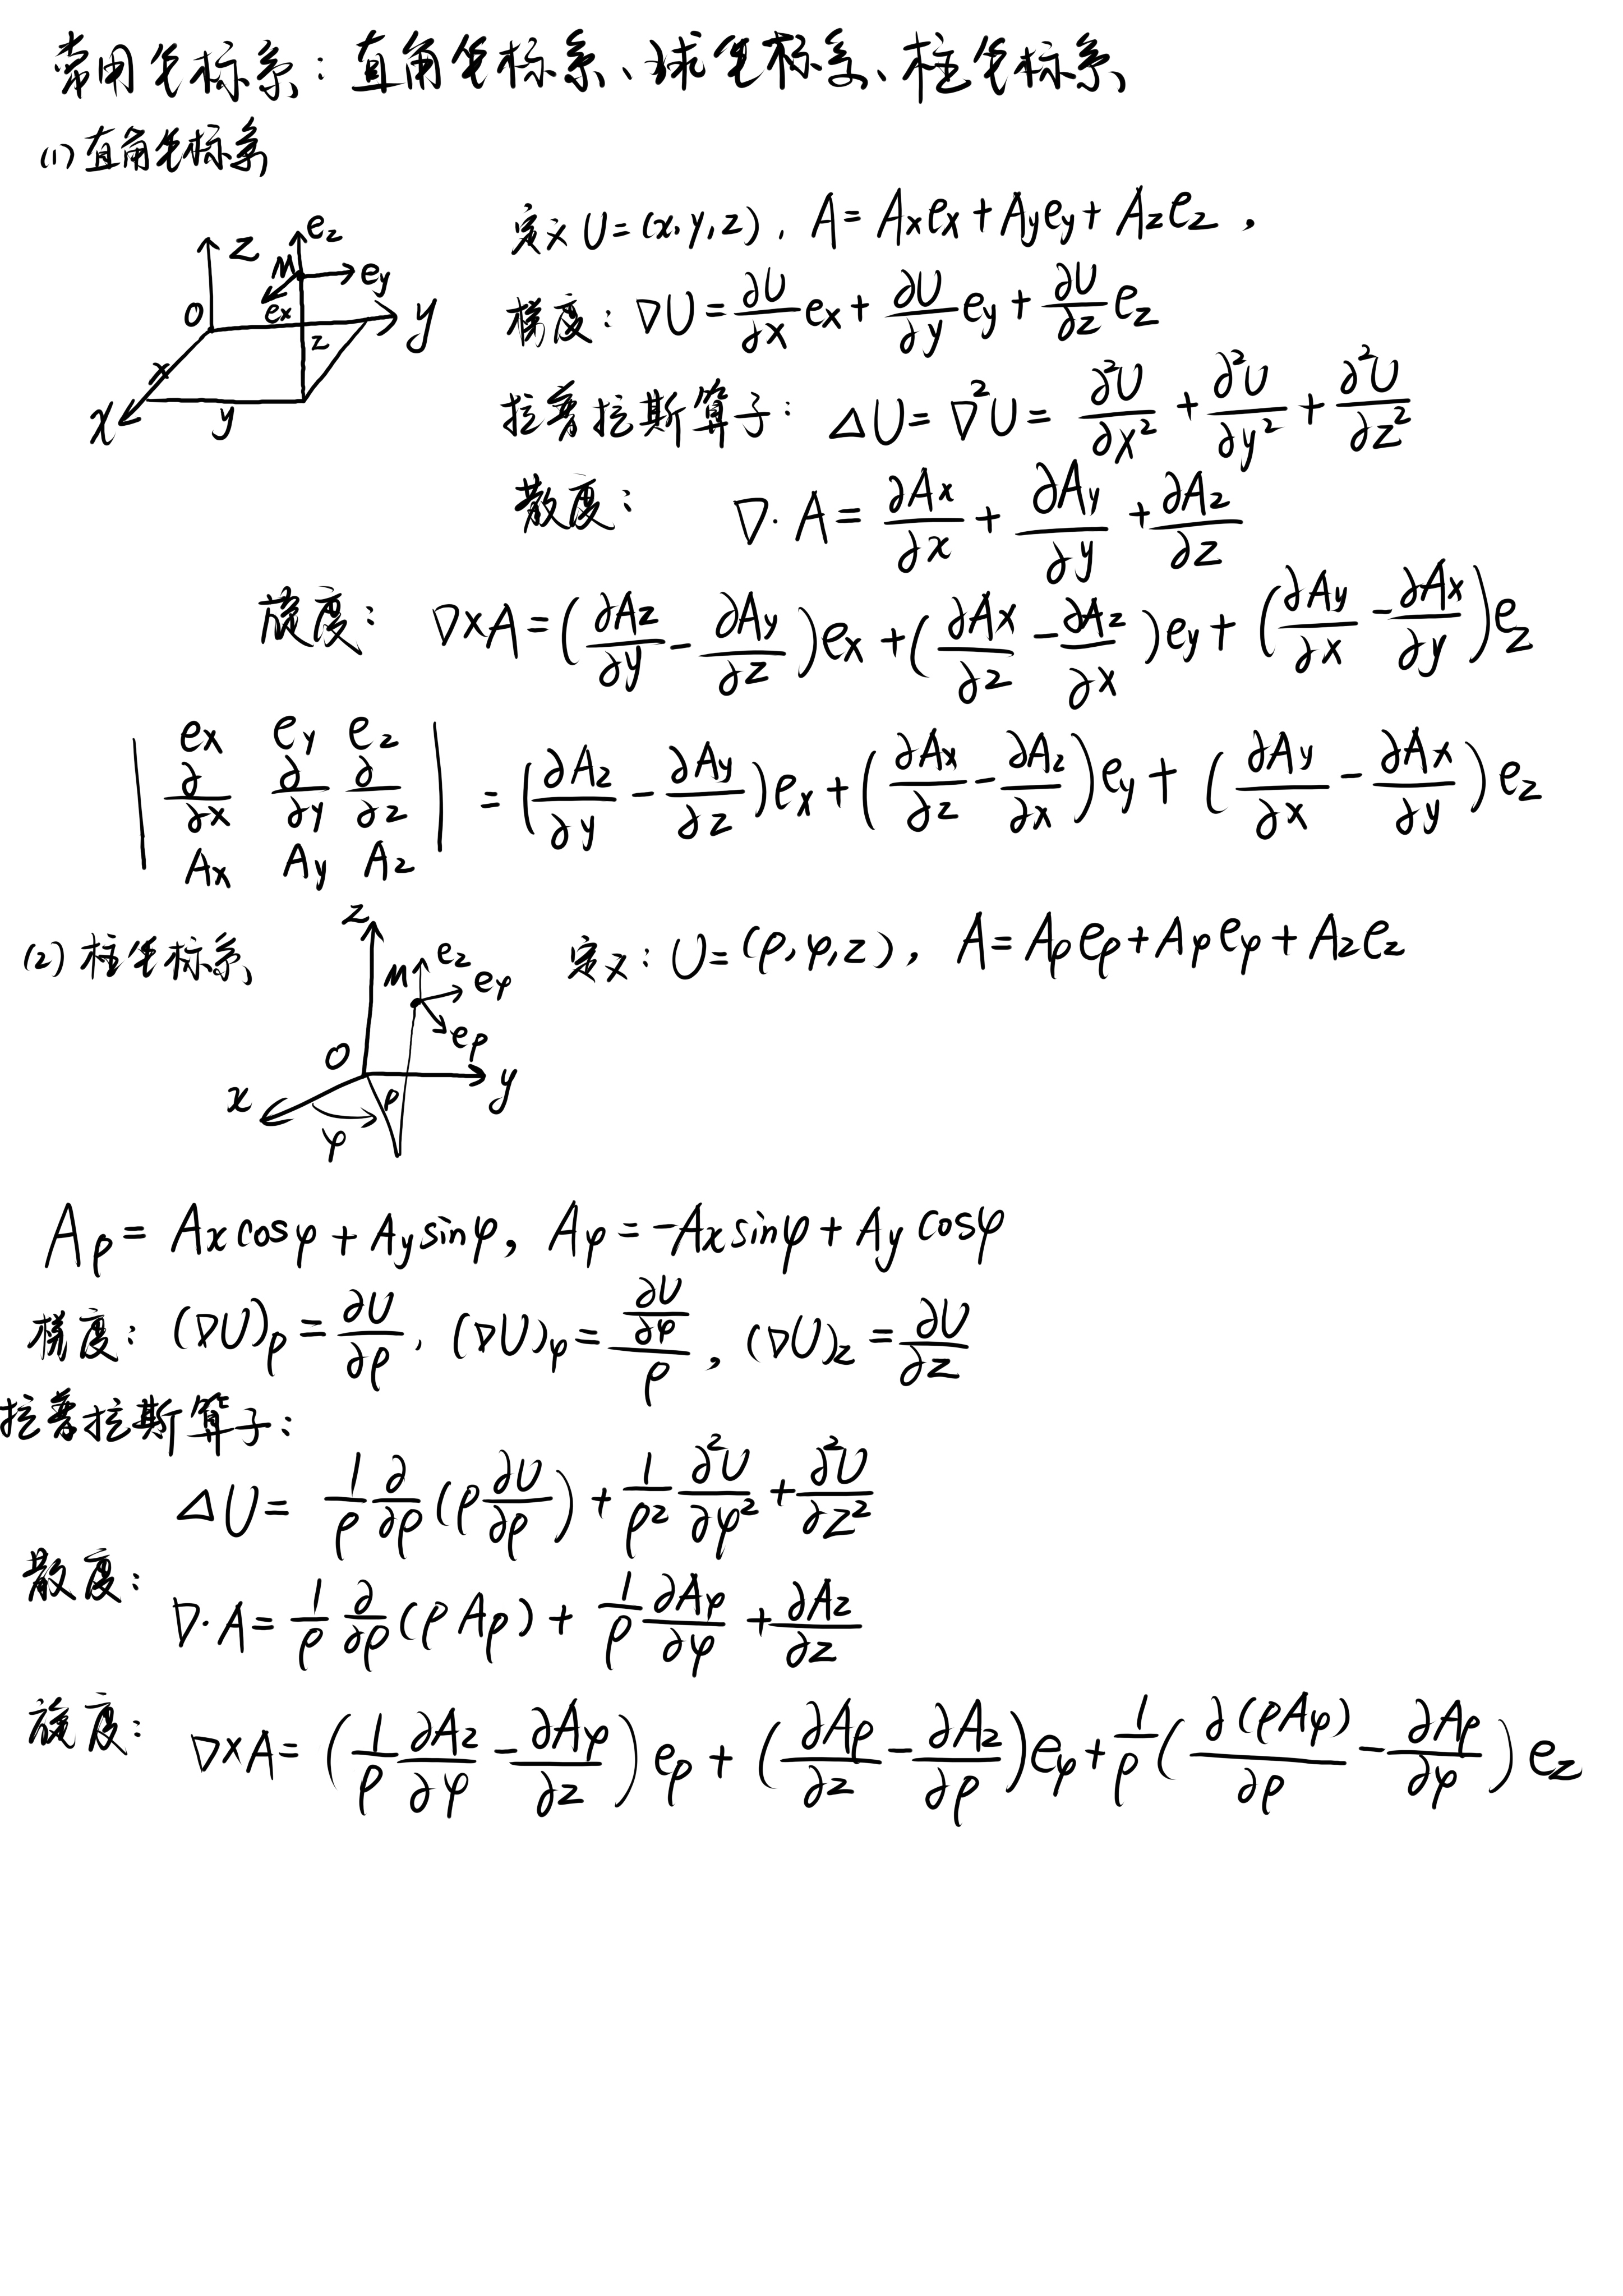 常用坐标系：直角坐标系、球坐标系、柱坐标系
(1) 直角坐标系
定义 U=(x,y,z)，A=A_x e_x+A_y e_y+A_z e_z，
z e_z M e_y O e_x y z x x y
梯度：∇U=∂U/∂x e_x+∂U/∂y e_y+∂U/∂z e_z
拉普拉斯算子：△U=∇²U=∂²U/∂x²+∂²U/∂y²+∂²U/∂z²
散度：∇·A=∂A_x/∂x+∂A_y/∂y+∂A_z/∂z
旋度：∇×A=(∂A_z/∂y-∂A_y/∂z)e_x+(∂A_x/∂z-∂A_z/∂x)e_y+(∂A_y/∂x-∂A_x/∂y)e_z
| e_x e_y e_z |
| ∂/∂x ∂/∂y ∂/∂z | =(∂A_z/∂y-∂A_y/∂z)e_x+(∂A_x/∂z-∂A_z/∂x)e_y+(∂A_y/∂x-∂A_x/∂y)e_z
| A_x A_y A_z |
(2) 柱坐标系
z M e_z e_φ e_ρ O x y ρ φ
定义：U=(ρ,φ,z)，A=A_ρ e_ρ+A_φ e_φ+A_z e_z
A_ρ=A_x cosφ+A_y sinφ，A_φ=-A_x sinφ+A_y cosφ
梯度：(∇U)_ρ=∂U/∂ρ，(∇U)_φ=(∂U/∂φ)/ρ，(∇U)_z=∂U/∂z
拉普拉斯算子：
△U=1/ρ ∂/∂ρ(ρ ∂U/∂ρ)+1/ρ² ∂²U/∂φ²+∂²U/∂z²
散度：
∇·A=1/ρ ∂/∂ρ(ρA_ρ)+1/ρ ∂A_φ/∂φ+∂A_z/∂z
旋度：∇×A=(1/ρ ∂A_z/∂φ-∂A_φ/∂z)e_ρ+(∂A_ρ/∂z-∂A_z/∂ρ)e_φ+1/ρ(∂(ρA_φ)/∂ρ-∂A_ρ/∂φ)e_z